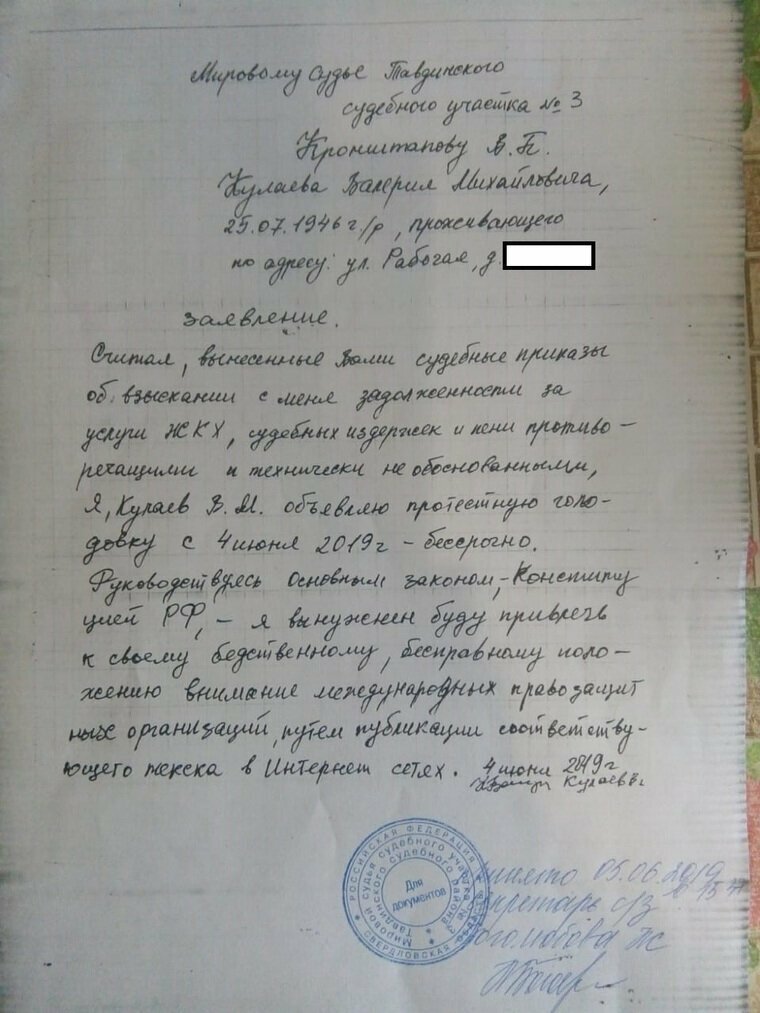 Мировому судье Тавдинского
судебного участка № 3
Кронштапову В.П.
Кулаева Валерия Михайловича,
25.07.1946 г/р, проживающего
по адресу: ул. Рабочая, д.
Заявление.
Считая, вынесенные Вами судебные приказы
об взыскании с меня задолженности за
услуги ЖКХ, судебных издержек и пени противо-
речащими и технически не обоснованными,
Я, Кулаев В.М. объявляю протестную голо-
довку с 4 июня 2019г – бессрочно.
Руководствуясь основным законом, – Конститу
цией РФ, – я вынужден буду привлечь
к своему бедственному, бесправному поло-
жению внимание международных правозащит
ных организаций, путем публикации соответству-
ющего текста в Интернет сетях.
4 июня 2019г
Кулаев В.
РОССИЙСКАЯ ФЕДЕРАЦИЯ
СВЕРДЛОВСКАЯ
Мировой судья судебного участка № 3
Тавдинского судебного района
Для
документов
05.06.2019
с/з